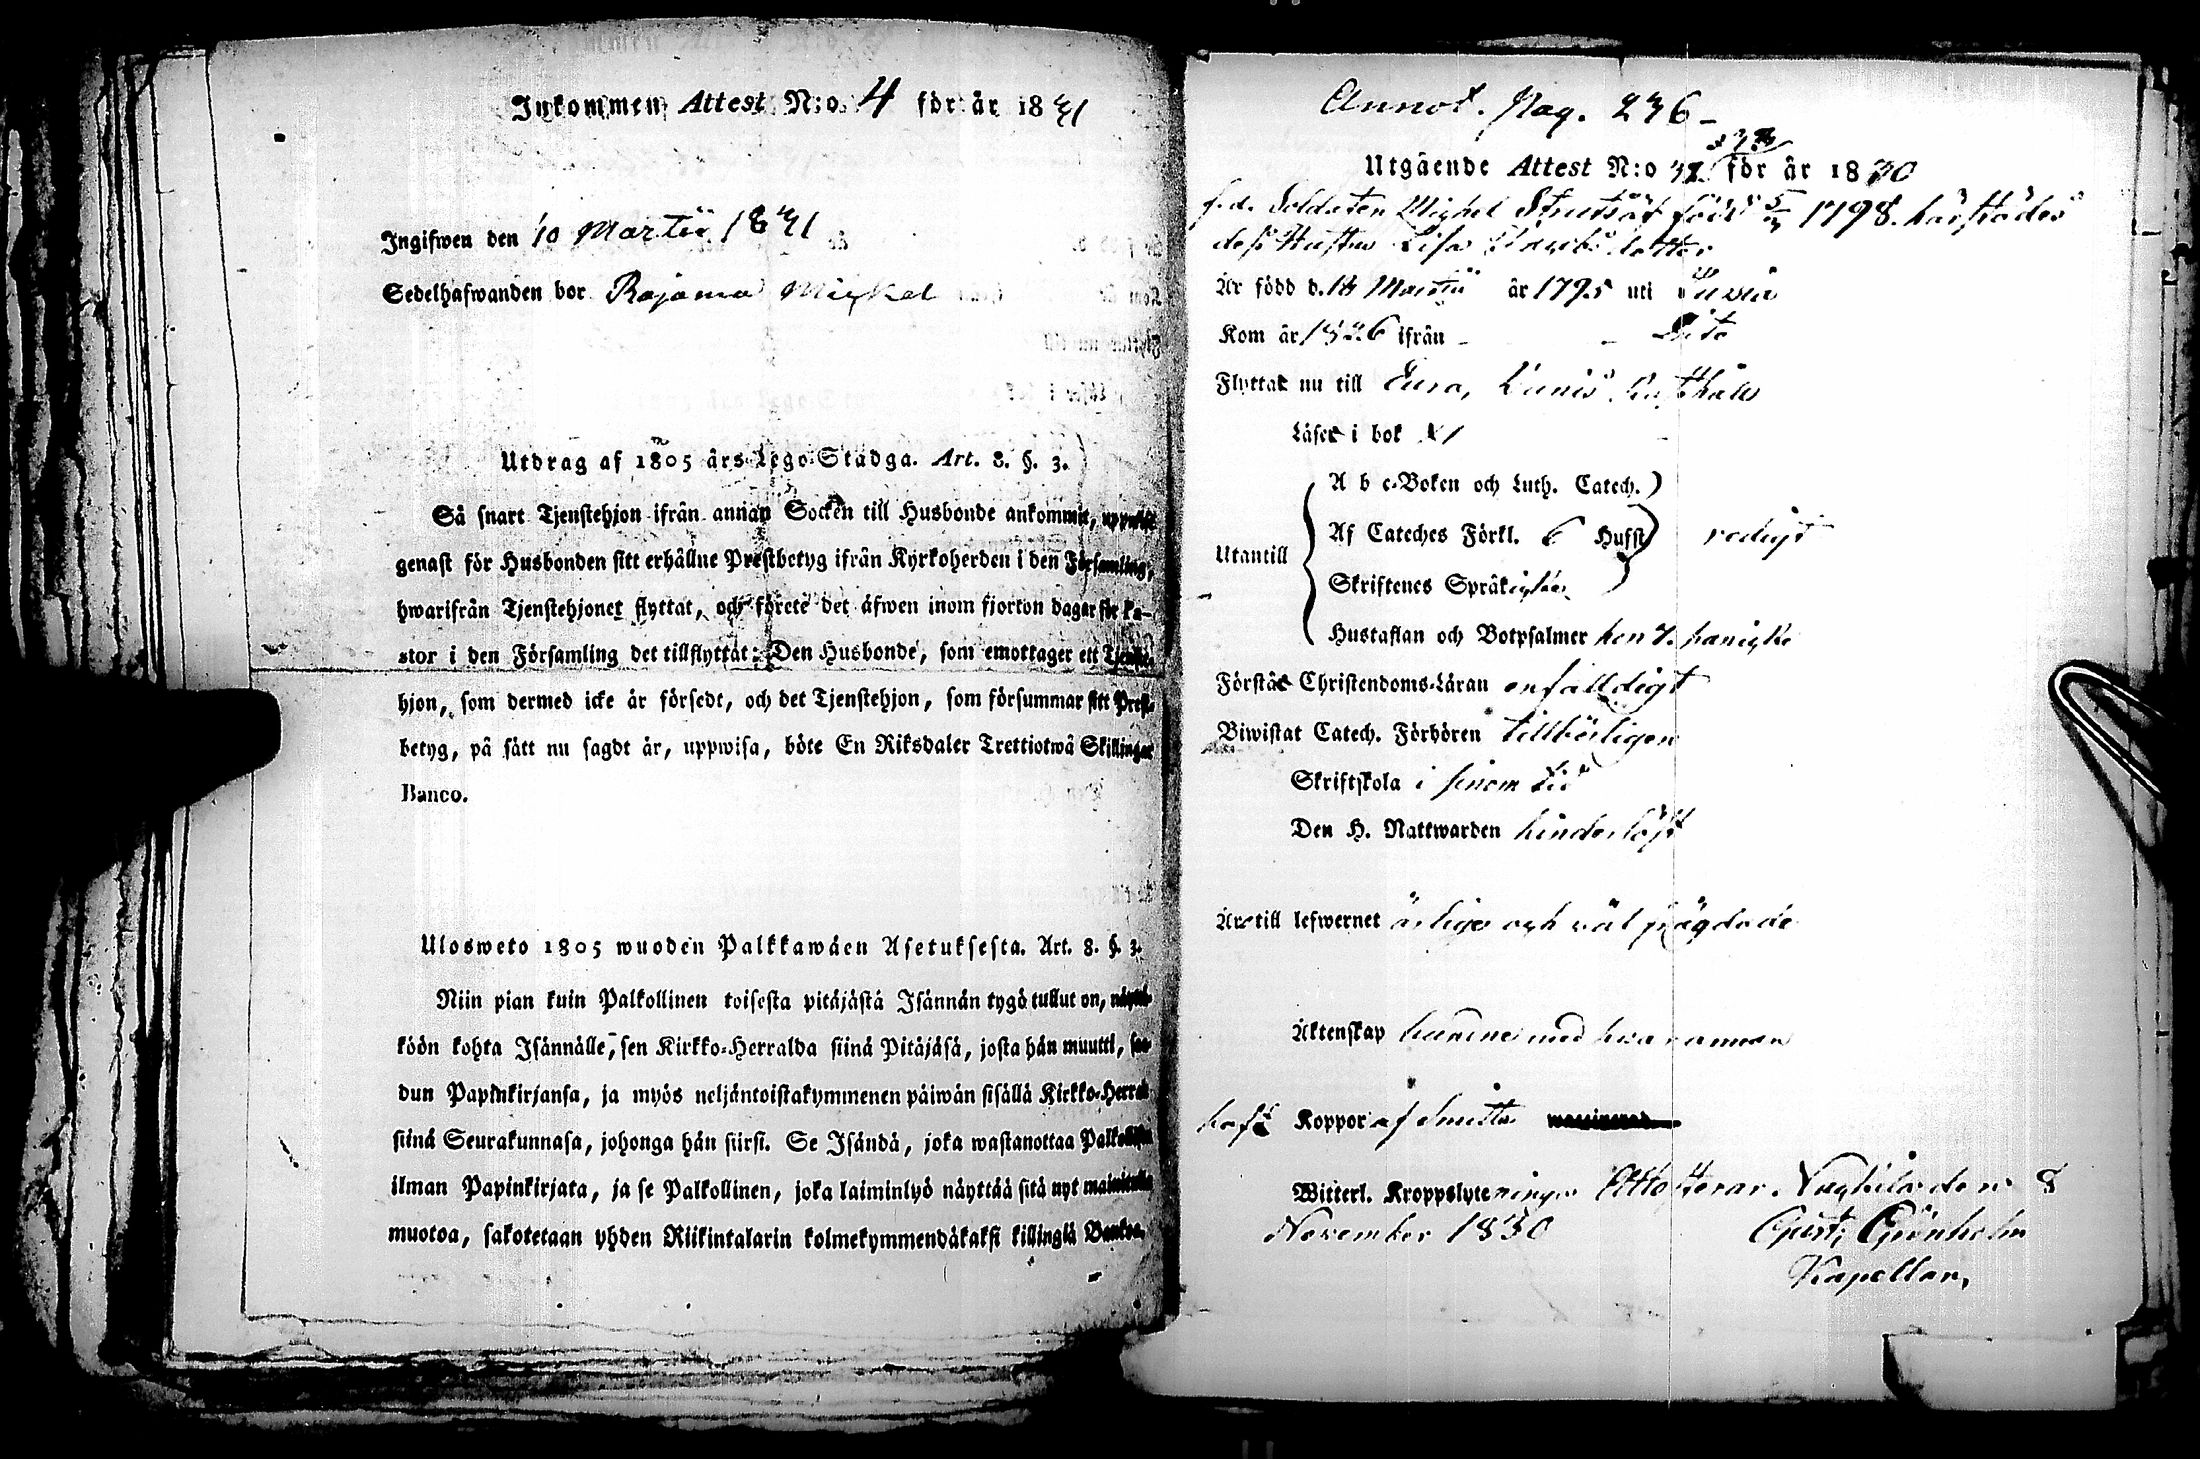 Inkommen Attest N:o 4 för år 1831
Ingifwen den 10 Martii 1831
Sedelhafwanden bor Rajama Mickel
Utdrag af 1805 års Lego-Stadga. Art. 8. §. 3.
Så snart Tjenstehjon ifrån annan Socken till Husbonde ankommit, uppwise
genast för Husbonden sitt erhållne Prestbetyg ifrån Kyrkoherden i den Församling,
hwarifrån Tjenstehjonet flyttat, och förete det äfwen inom fjorton dagar för Pa-
stor i den Församling det tillflyttat: Den Husbonde, som emottager ett Tjenste-
hjon, som dermed icke är försedt, och det Tjenstehjon, som försummar sitt Prest-
betyg, på sätt nu sagdt är, uppwisa, böte En Riksdaler Trettiotwå Skillingar
Banco.
Ulosweto 1805 wuoden Palkkawäen Asetuksesta. Art. 8. §. 3.
Niin pian kuin Palkollinen toisesta pitäjästä Isännän tygö tullut on, näyttä-
köön kohta Isännälle, sen Kirkko-Herralda siinä Pitäjäsä, josta hän muutti, saa-
dun Papinkirjansa, ja myös neljäntoistakymmenen päiwän sisällä Kirkko-Herral
siinä Seurakunnasa, johonga hän siirsi. Se Isändä, joka wastanottaa Palkollisen
ilman Papinkirjata, ja se Palkollinen, joka laiminlyö näyttää sitä nyt mainitulla
muotoa, sakotetaan yhden Riikintalarin kolmekymmendäkaksi killingiä Bankoa.
Annot. Pag. 236
Utgående Attest N:o för år 1830
f.d. Soldaten Michel född 1798. härstädes
dess Hustru Lisa dotter
Är född d. 18 Martii år 1795 uti
Kom år 1826 ifrån Dito
Flyttat nu till Eura,
Läser i bok
Utantill
A b c-Boken och Luth. Catech.
Af Cateches Förkl. 6 Hufst redigt
Skriftenes Språk icke
Hustaflan och Botpsalmer
Förstår Christendoms-Läran enfalldigt
Biwistat Catech. Förhören tillbörligen
Skriftskola i sinom tid
Den H. Nattwarden hinderlöst
Äre till lefwernet ärlige och väl frägdade
Äktenskap med hvarannan
haft Koppor af smitta
Witterl. Kroppslyte ninger Attesterar. Nackila den 8
November 1830 Gust. Grönholm
Kapellan,